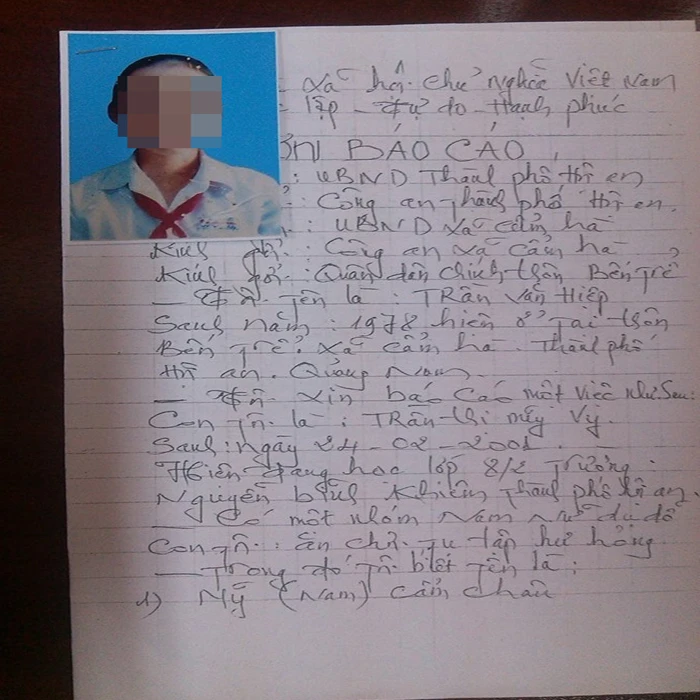 - Xã hội chủ nghĩa Việt Nam
- lập - Tự do - Hạnh phúc
ƠN BÁO CÁO
: UBND Thành phố Hội an
: Công an Thành phố Hội an.
: UBND Xã cẩm hà
Kính gởi : Công an xã Cẩm hà
Kính gởi : Quân dân chính thôn Bến Trễ
— Tôi tên là : TRần Văn Hiệp
Sanh năm : 1978 hiện ở Tại thôn
Bến Trễ. Xã cẩm hà. Thành phố
Hội an. Quảng Nam.
— Tôi xin báo cáo một việc như sau:
Con Tôi là : TRần thị mỹ Vy.
Sanh: ngày 24-02-2001. —
Hiện đang học lớp 8/2 Trường :
Nguyễn bỉnh Khiêm Thành phố hội an
— có một nhóm Nam Nữ dụ dỗ
Con Tôi. : ăn chơi tụ tập hư hỏng
— Trong đó Tôi biết Tên là :
1) Mỹ (Nam) cẩm châu